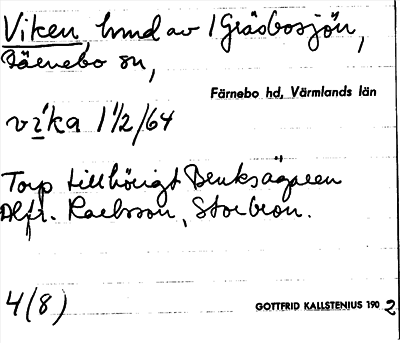 Viken, hmd av / Gräsbosjön,
Färnebo sn,
Färnebo hd, Värmlands län
vi'ka 1 1/2/64
Torp tillhörigt Bruksägaren
Alfr. Karlsson, Storbron.
4(8)
GOTTFRID KALLSTENIUS 1902